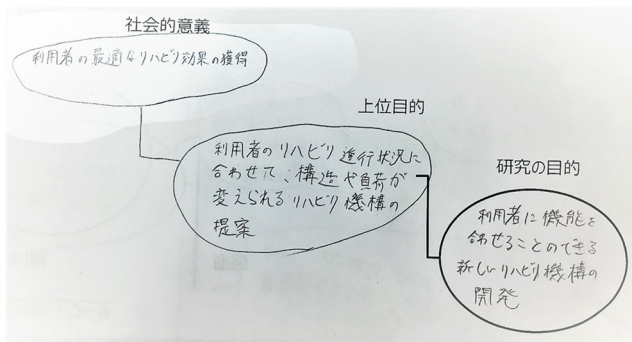 社会的意義
利用者の最適なリハビリ効果の獲得
上位目的
利用者のリハビリ進行状況に
合わせて、構造や負荷が
変えられるリハビリ機構の
提案
研究の目的
利用者に機能を
合わせることのできる
新しいリハビリ機構の
開発